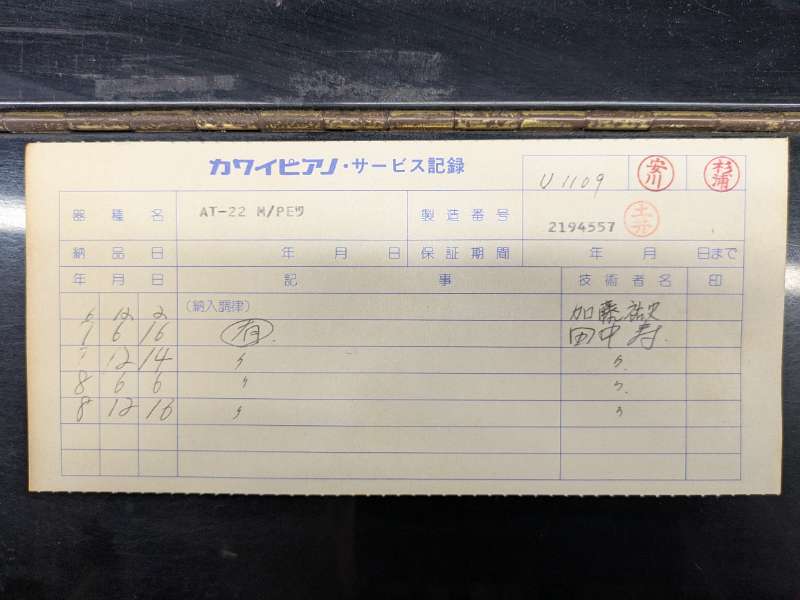 カワイピアノ・サービス記録
U 1109 安川 杉浦
器種名 AT-22 M/PEツ 製造番号 2194557 土井
納品日 年 月 日 保証期間 年 月 日まで
年 月 日 記事 技術者名 印
6 12 2 (納入調律) 加藤
7 6 16 有. 田中 寿.
7 12 14 〃 〃
8 6 6 〃 〃
8 12 18 〃 〃